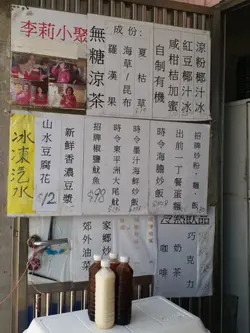 李莉小聚
涼粉椰汁冰
紅豆椰汁冰
咸柑桔加蜜
自制有機
成份:
夏枯草
海草/昆布
羅漢果
無糖涼茶
招牌炒粉、麵、飯
出前一丁餐蛋麵
時令海膽炒飯
時令墨汁海鮮炒飯
時令東平洲大尾魷
招牌椒鹽魷
$98
新鮮香濃豆漿
山水豆腐花
$12
冰凍汽水
冷熱飲品
巧克力
奶茶
咖啡
家鄉炒
郊外油菜